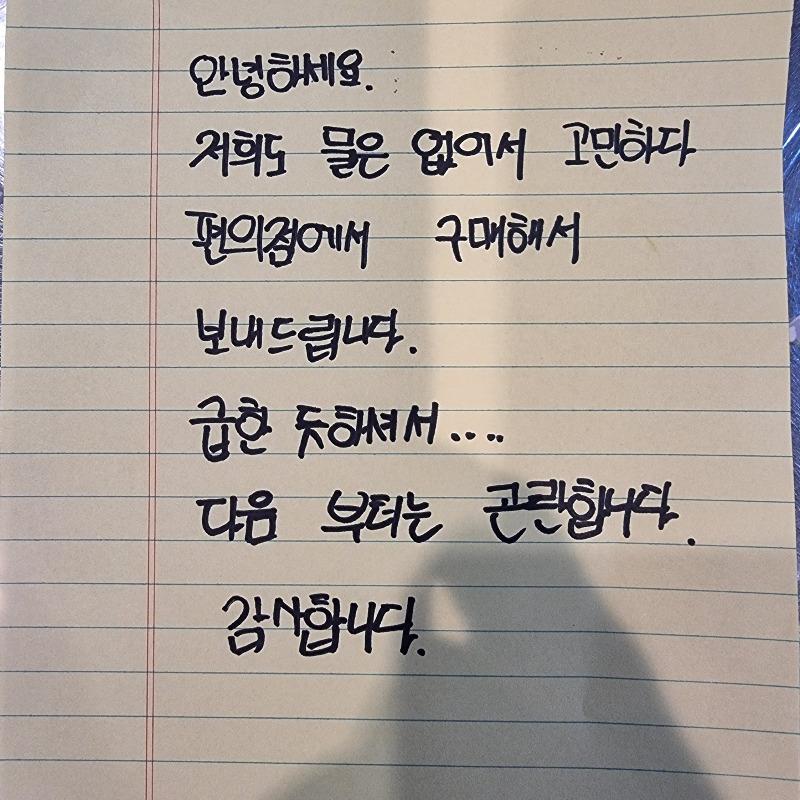 안녕하세요.
저희도 물은 없어서 고민하다
편의점에서 구매해서
보내드립니다.
급한 듯하셔서....
다음 부터는 곤란합니다.
감사합니다.